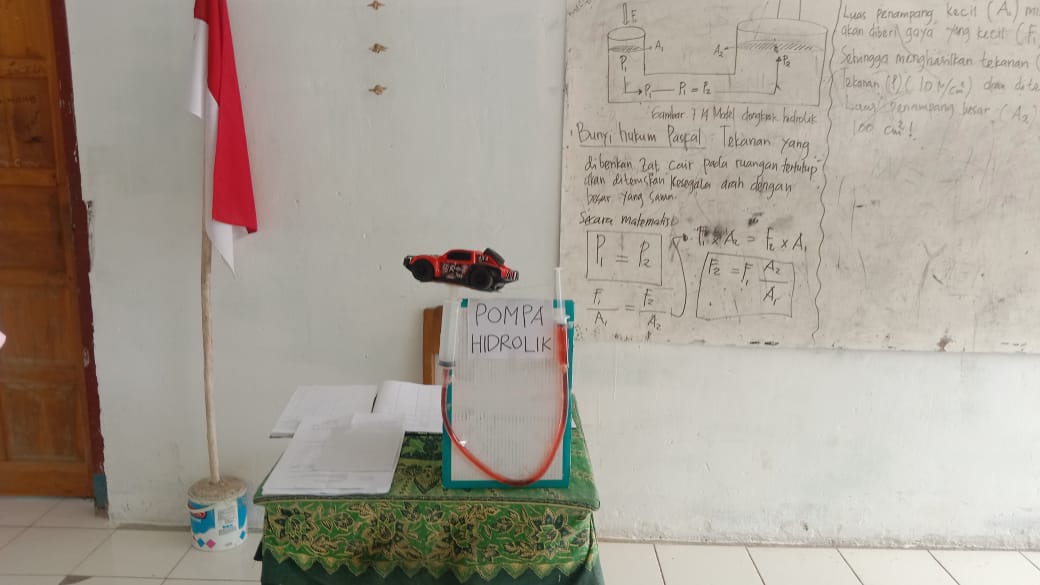 POMPA
HIDROLIK
F₁
A₁
A₂
P₁
P₂
P₁ — P₁ = P₂
Gambar 7.14 Model dongkrak hidrolik
Bunyi hukum Paskal : Tekanan yang
diberikan zat cair pada ruangan tertutup
akan diteruskan kesegala arah dengan
besar yang sama.
Secara matematis
P₁ = P₂
F₁/A₁ = F₂/A₂
F₁ x A₂ = F₂ x A₁
F₂ = F₁ A₂/A₁
Luas penampang kecil (A₁)
akan diberi gaya yang kecil (F₁
Sehingga menghasilkan tekanan
Tekanan (P) (10 N/cm²) akan
Luas penampang besar (A₂)
100 cm²!